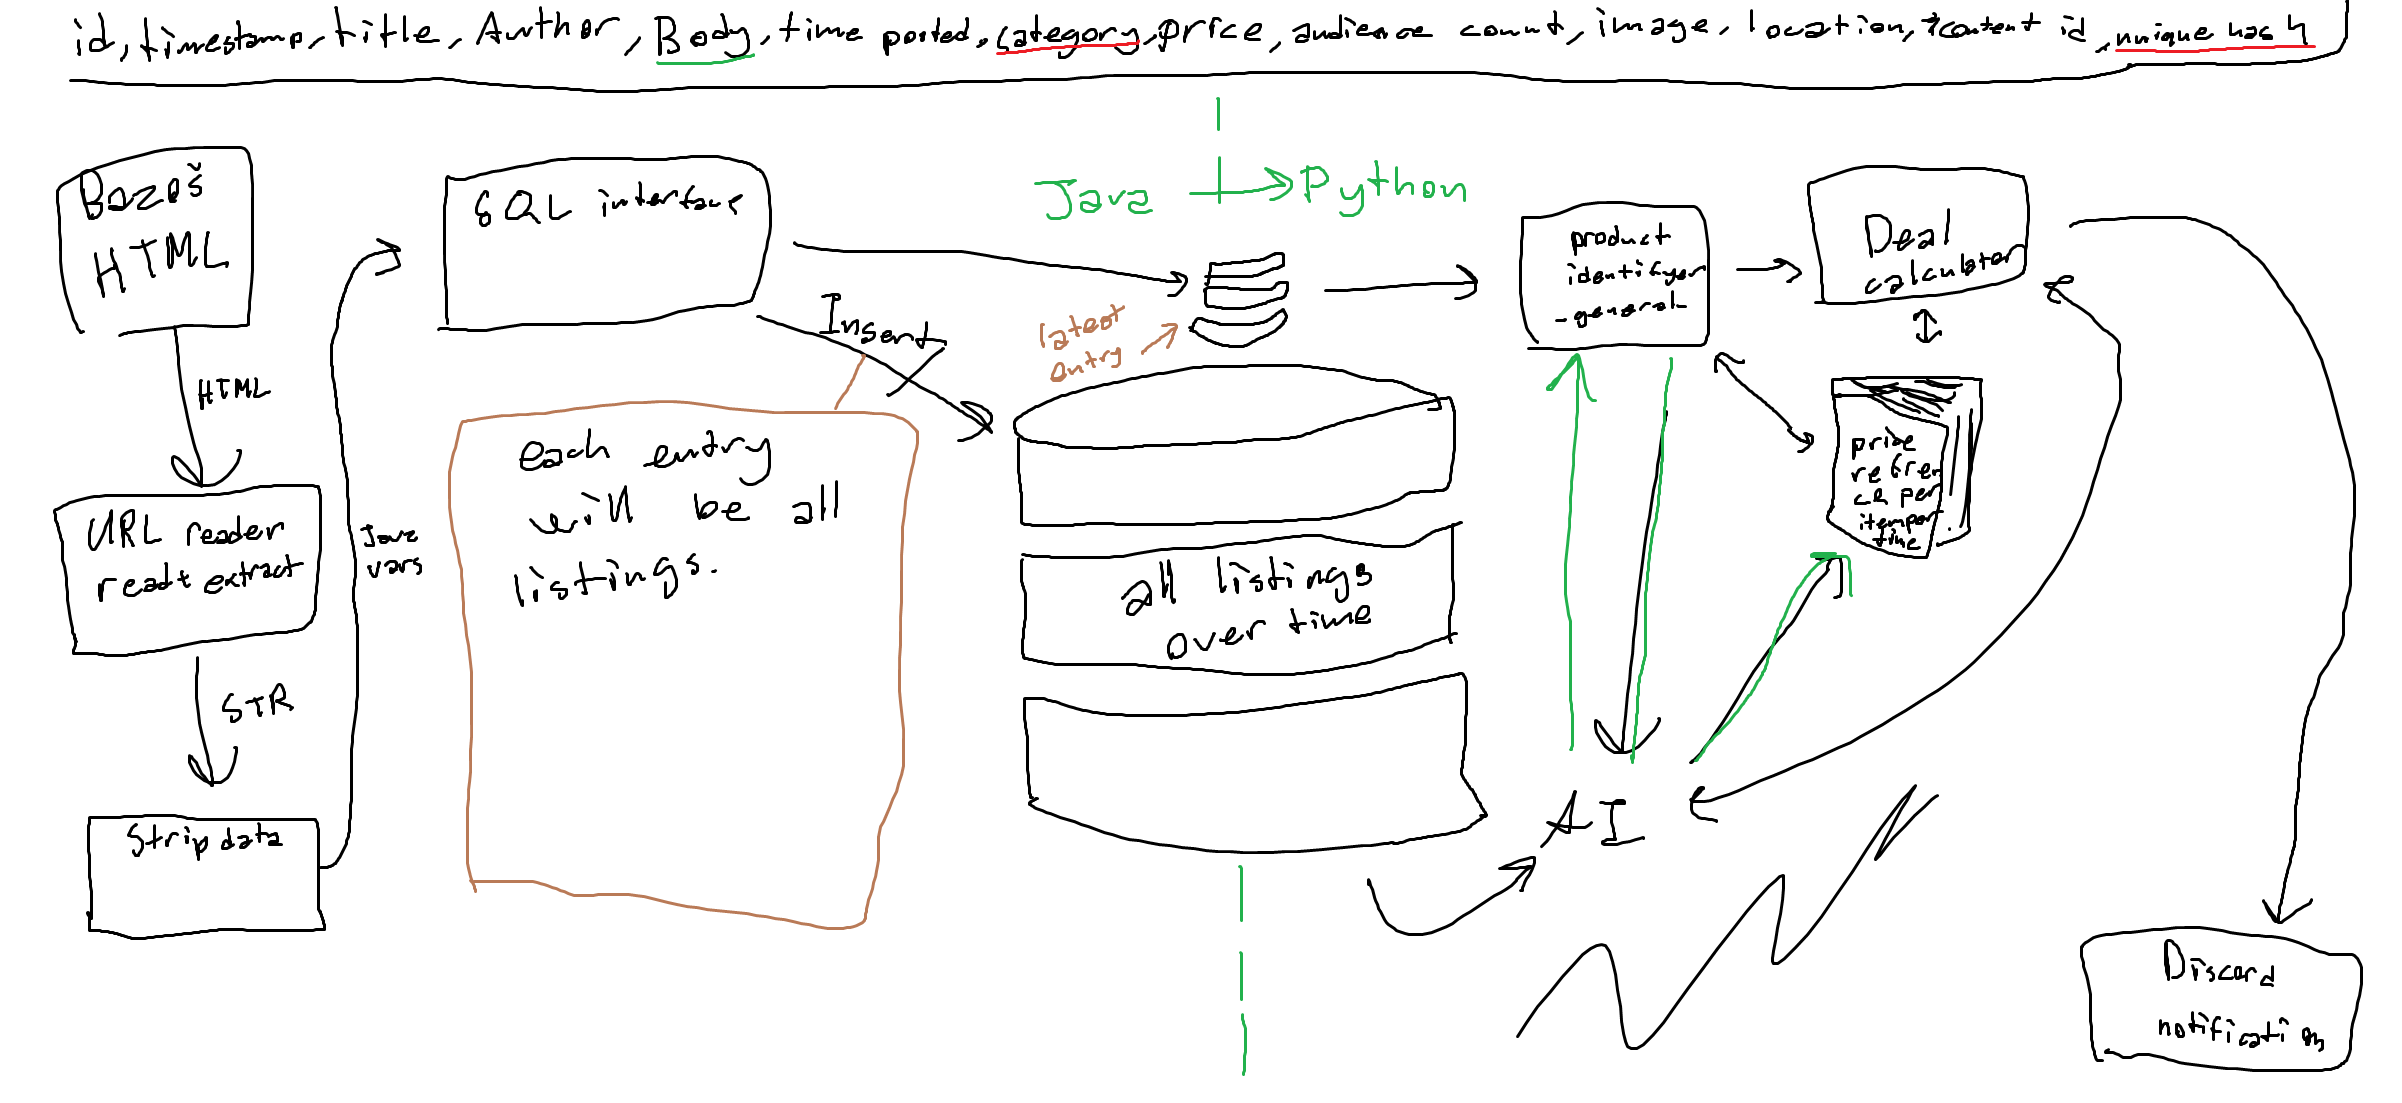 id, timestamp, title, Author, Body, time posted, category, price, audience count, image, location, content id, unique hash
Bazoš
HTML
HTML
URL reader
read + extract
STR
Strip data
Java
vars
SQL interface
Insert
each entry
will be all
listings.
Java
Python
latest
entry
all listings
over time
product
identifyer
- general
Deal
calculator
price
refren
ce per
item per
time
AI
Discord
notification